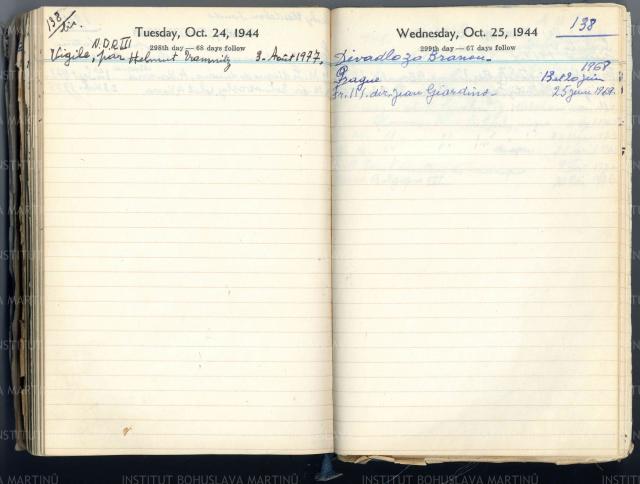 138
Tuesday, Oct. 24, 1944
298th day — 68 days follow
N.D.R. III
Vigile, par Helmut Tramnitz 3. Août 1977.
138
Wednesday, Oct. 25, 1944
299th day — 67 days follow
Divadlo za Branou.
Prague 1968
13 et 20 juin
Fr. III. dir. Jean Giardino. 25 juin 1968.
INSTITUT BOHUSLAVA MARTINŮ